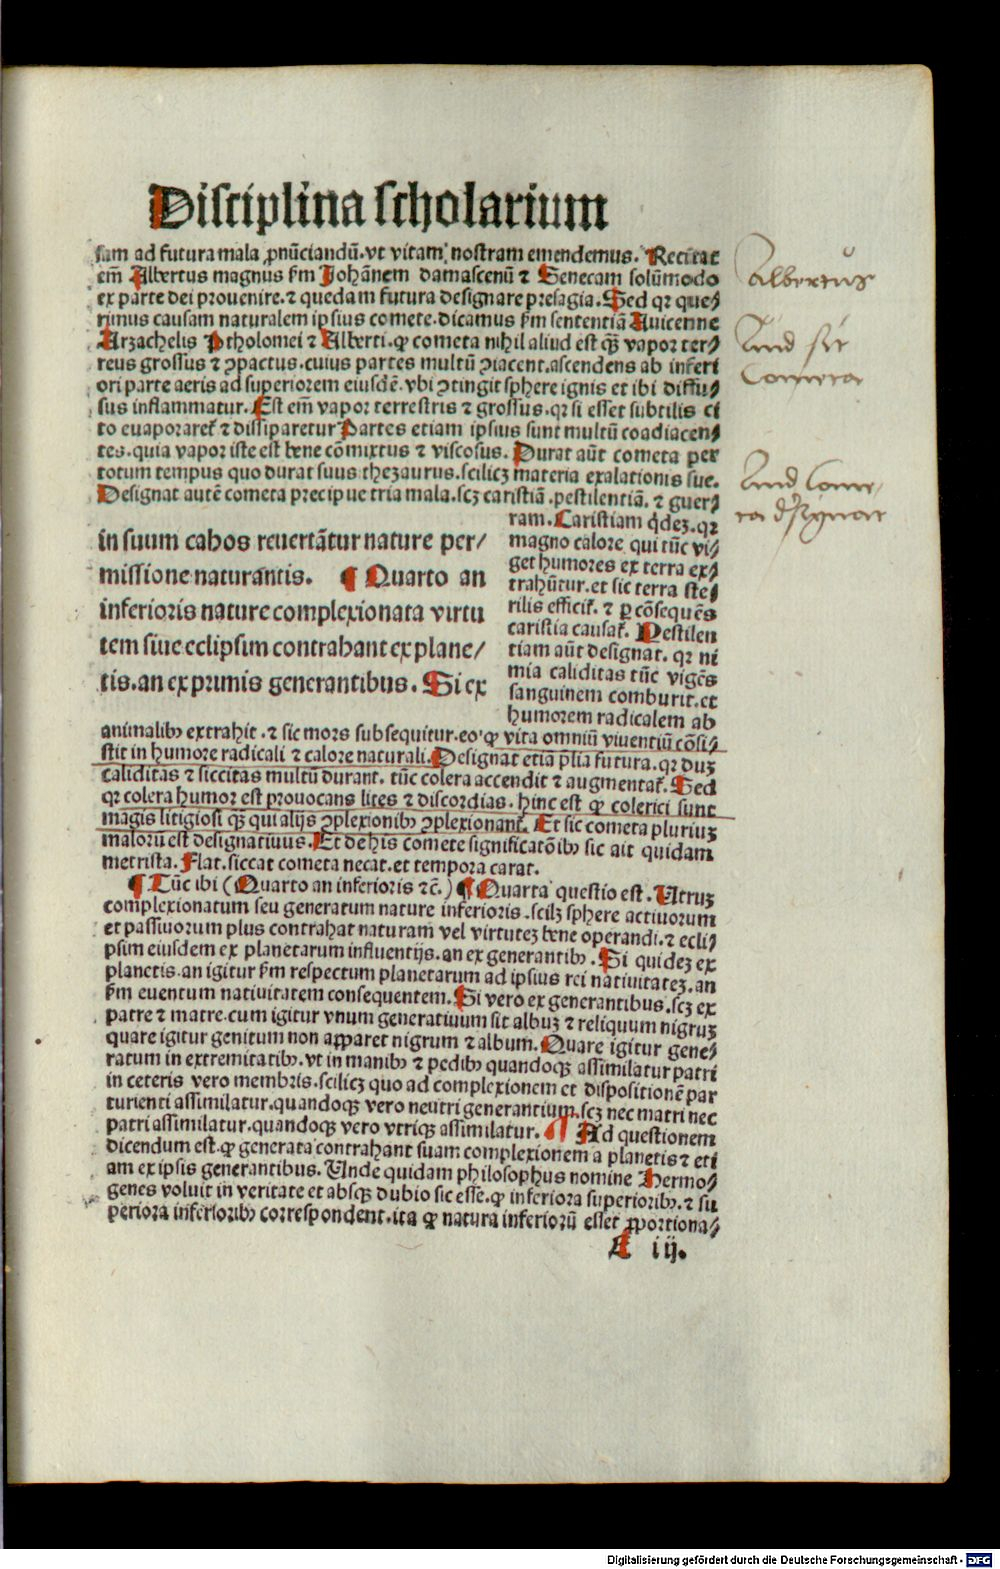 Disciplina scholarium
sam ad futura mala ꝓnūciandū. vt vitam nostram emendemus. Recitat
em̄ Albertus magnus ẜm Johānem damascenū ⁊ Senecam solūmodo
ex parte dei prouenire. ⁊ quedam futura designare presagia. Sed qꝛ que⸗
rimus causam naturalem ipsius comete. dicamus ẜm sententiā Auicenne
Arzachelis Ptholomei ⁊ Alberti. ꝙ cometa nihil aliud est qꝫ̄ vapor ter⸗
reus grossus ⁊ ꝯpactus. cuius partes multū ꝯiacent. ascendens ab inferi
ori parte aeris ad superiorem eiusdē. vbi ꝯtingit sphere ignis et ibi diffu⸗
sus inflammatur. Est em̄ vapor terrestris ⁊ grossus. qꝛ si esset subtilis ci
to euaporaret᷑ ⁊ dissiparetur Partes etiam ipsius sunt multū coadiacen⸗
tes. quia vapor iste est bene cōmixtus ⁊ viscosus. Durat aūt cometa per
totum tempus quo durat suus thezaurus. scilicꝫ materia exalationis sue.
Designat autē cometa precipue tria mala. scꝫ caristiā. pestilentiā. ⁊ guer⸗
ram. Caristiam q̇dez. qꝛ
magno calore qui tūc vi⸗
get humores ex terra ex⸗
trahūtur. et sic terra ste⸗
rilis efficit᷑. ⁊ ꝑ cōsequēs
caristia causat᷑. Pestilen
tiam aūt designat. qꝛ ni
mia caliditas tūc vigēs
sanguinem comburit. et
humorem radicalem ab
in suum cahos reuertātur nature per⸗
missione naturantis. ¶ Quarto an
inferioris nature complexionata virtu
tem siue eclipsim contrahant ex plane⸗
tis. an ex primis generantibus. Si ex
animalibꝰ extrahit. ⁊ sic mors subsequitur. eo ꝙ vita omniū viuentiū cōsi⸗
stit in humore radicali ⁊ calore naturali. Designat etiā p̄lia futura. qꝛ duꝫ
caliditas ⁊ siccitas multū durant. tūc colera accendit ⁊ augmentat᷑. Sed
qꝛ colera humor est prouocans lites ⁊ discordias. hinc est ꝙ colerici sunt
magis litigiosi qꝫ̄ qui alijs ꝯplexionibꝰ ꝯplexionant᷑. Et sic cometa pluriuꝫ
malorū est designatiuus. Et de his comete significatōibꝰ sic ait quidam
metrista. Flat. siccat cometa necat. et tempora carat.
¶ Tūc ibi (Quarto an inferioris ⁊c̄.) ¶ Quarta questio est. Utruꝫ
complexionatum seu generatum nature inferioris. scilꝫ sphere actiuorum
et passiuorum plus contrahat naturam vel virtutez bene operandi. ⁊ ecli⸗
psim eiusdem ex planetarum influentijs. an ex generantibꝰ. Si quidez ex
planetis. an igitur ẜm respectum planetarum ad ipsius rei natiuitatez. an
ẜm euentum natiuitatem consequentem. Si vero ex generantibus. scꝫ ex
patre ⁊ matre. cum igitur vnum generatiuum sit albuꝫ ⁊ reliquum nigruꝫ
quare igitur genitum non apparet nigrum ⁊ album. Quare igitur gene⸗
ratum in extremitatibꝰ. vt in manibꝰ ⁊ pedibꝰ quandoqꝫ assimilatur patri
in ceteris vero membris. scilicꝫ quo ad complexionem et dispositionē par
turienti assimilatur. quandoqꝫ vero neutri generantium. scꝫ nec matri nec
patri assimilatur. quandoqꝫ vero vtriqꝫ assimilatur. ¶ Ad questionem
dicendum est. ꝙ generata contrahant suam complexionem a planetis ⁊ eti
am ex ipsis generantibus. Unde quidam philosophus nomine Hermo⸗
genes voluit in veritate et absqꝫ dubio sic esse. ꝙ inferiora superioribꝰ. ⁊ su
periora inferioribꝰ correspondent. ita ꝙ natura inferiorū esset ꝓportiona⸗
A iij.
Albertus
Quid sit
Cometa
Quid Come⸗
ta designat
Digitalisierung gefördert durch die Deutsche Forschungsgemeinschaft - DFG